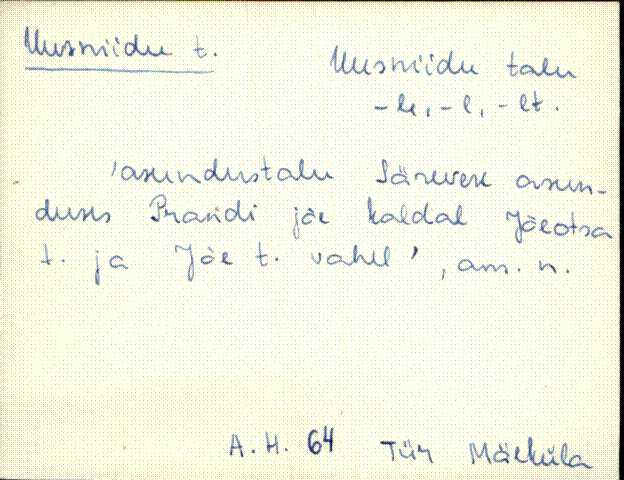 Uusniidu t.
Uusniidu talu
-le, -l, -lt.
'asundustalu Särevere asun-
duses Prandi jõe kaldal Jõeotsa
t. ja Jõe t. vahel', am. n.
A. H. 64 Tür Mäeküla